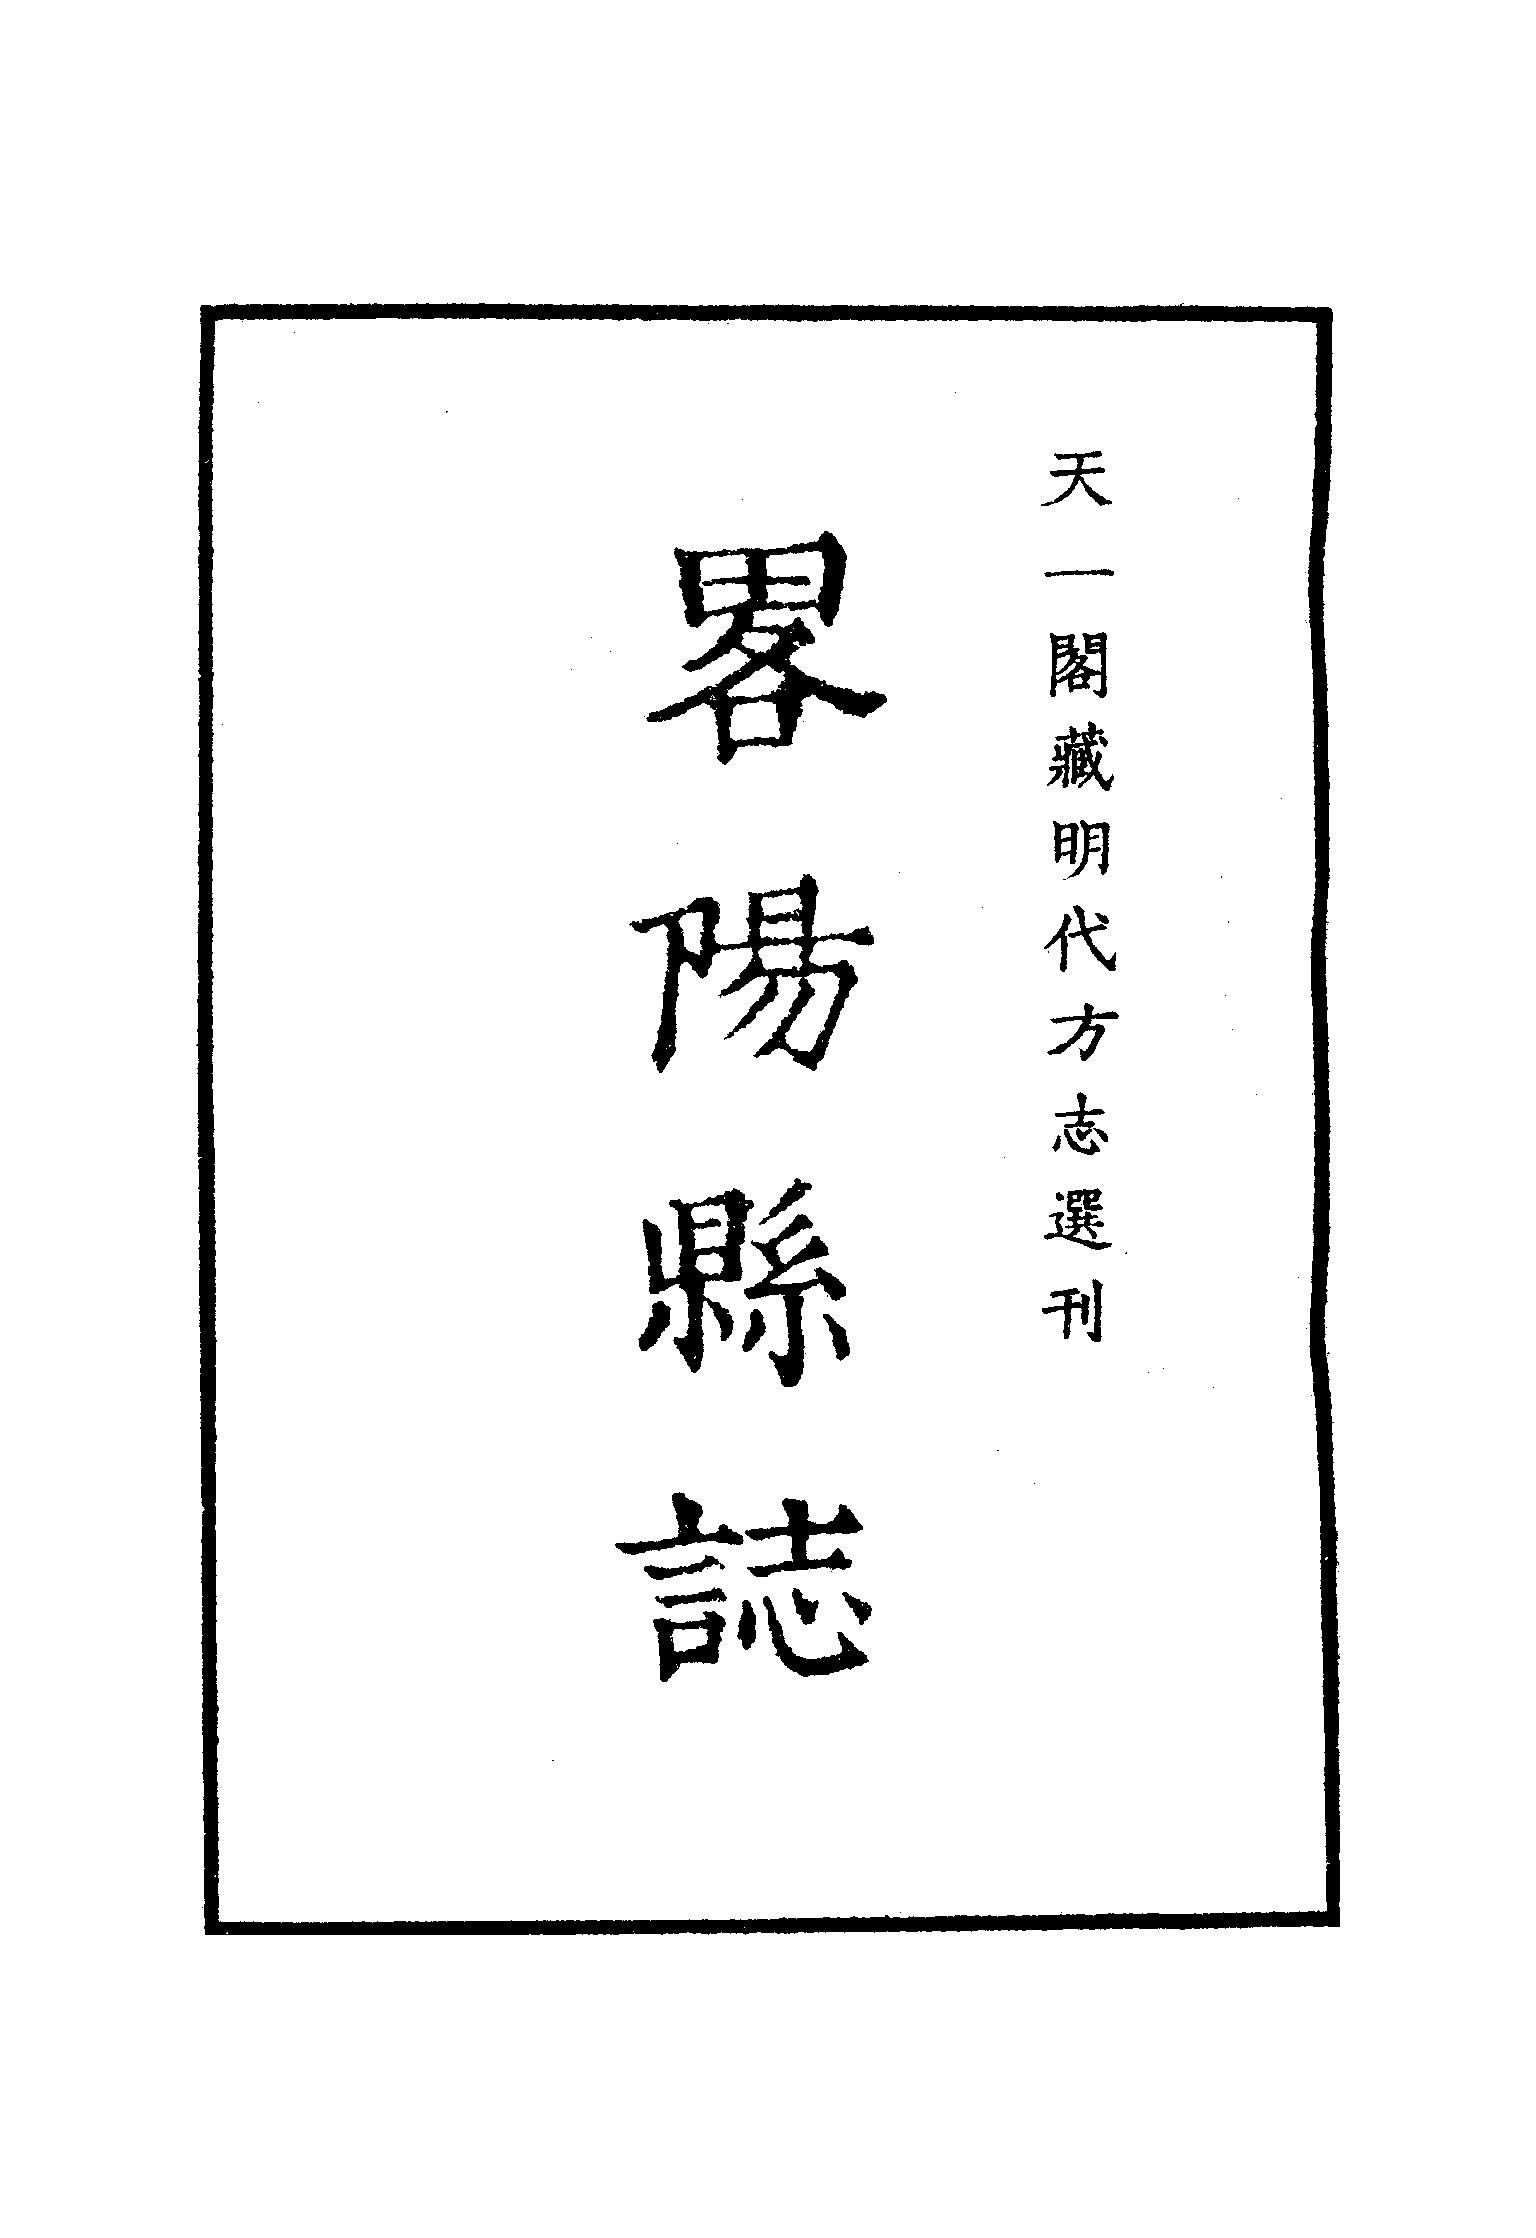 天一閣藏明代方志選刊
畧陽縣誌